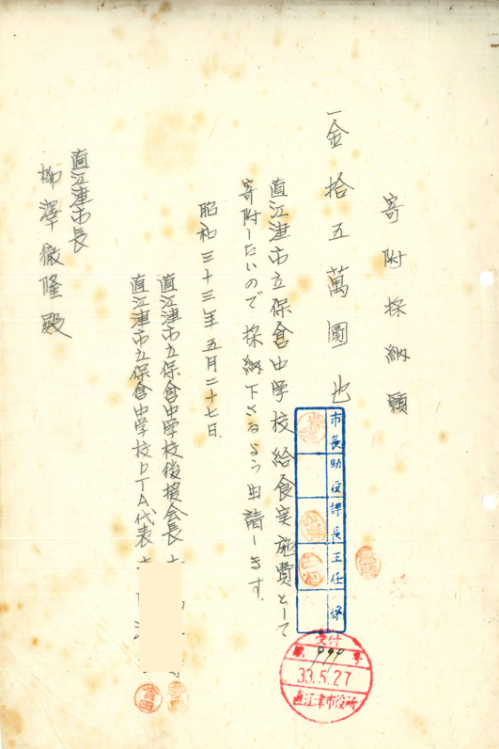 寄附採納願
一金拾五萬圓也
直江津市立保倉中学校給食実施費として
寄附したいので採納下さるよう申請します。
昭和三十三年五月二十七日
直江津市立保倉中学校後援会長
直江津市立保倉中学校PTA代表
直江津市長
柳澤徹隆殿
市長 助役 課長 主任 係
受付
第 号
33.5.27
直江津市役所